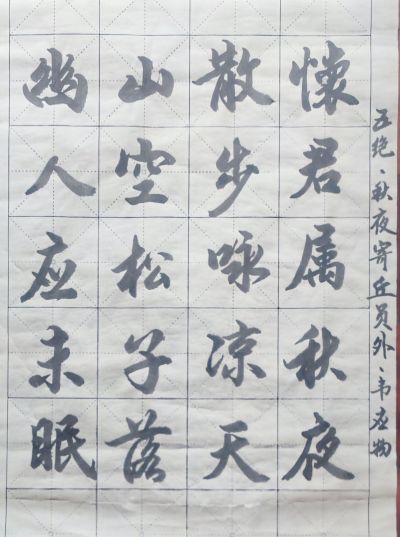 五绝、秋夜寄丘员外、韦应物
怀君属秋夜
散步咏凉天
山空松子落
幽人应未眠